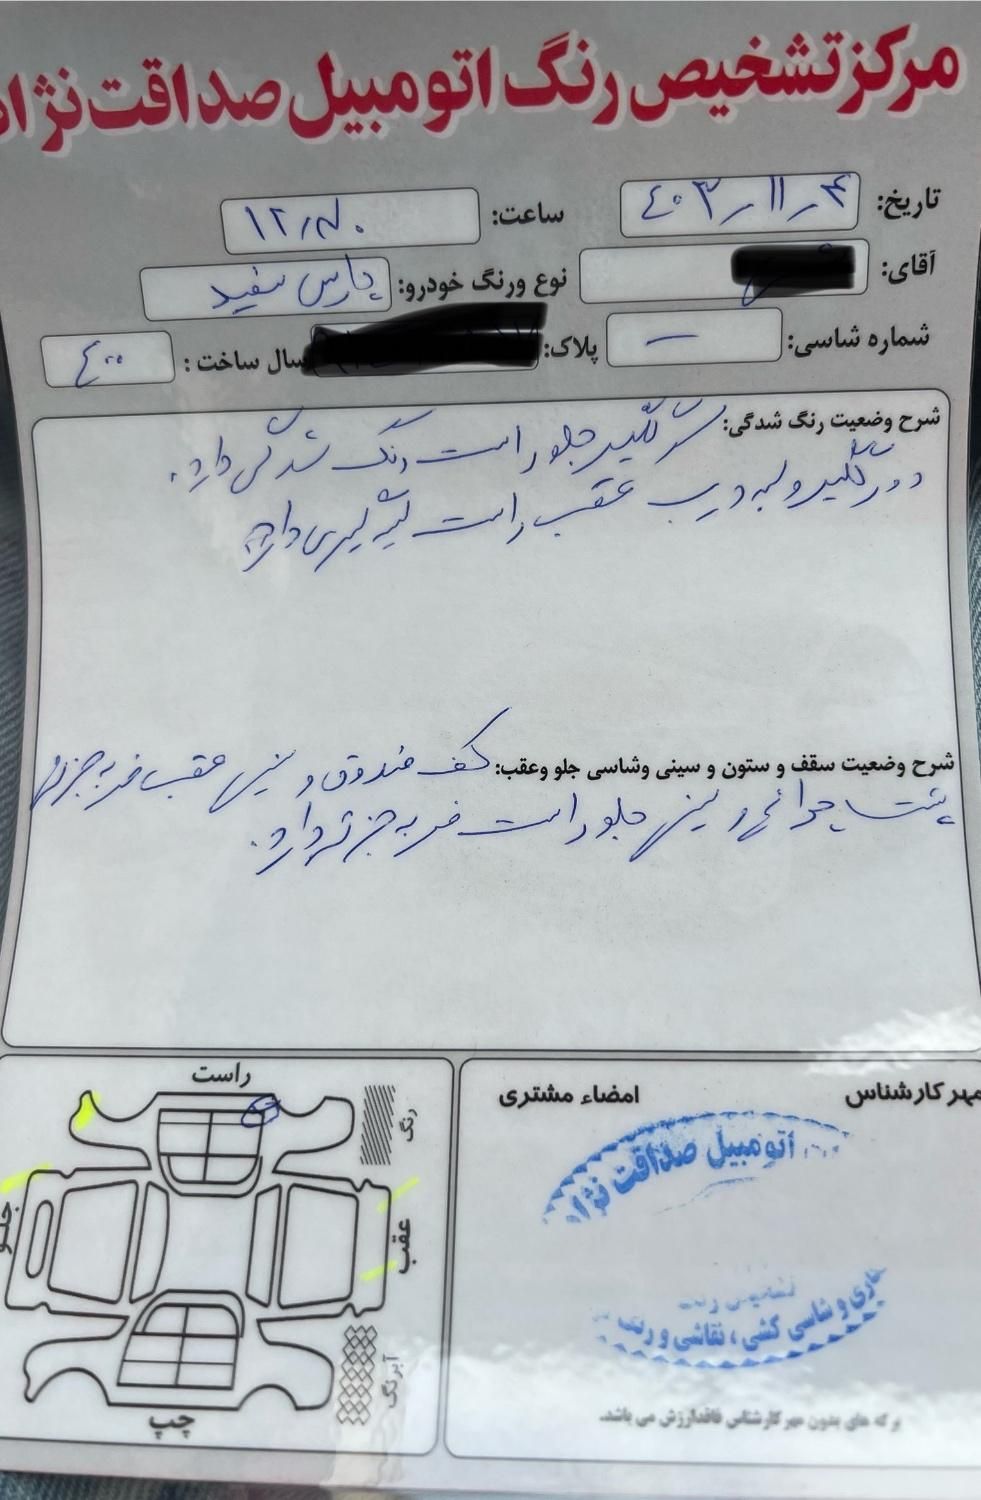 مرکز تشخیص رنگ اتومبیل صداقت نژاد
تاریخ: ۴۰۳/۱۱/۴ ساعت: ۱۲/۳۰
آقای: نوع ورنگ خودرو: پارس سفید
شماره شاسی: — پلاک: سال ساخت: ۴۰۰
شرح وضعیت رنگ شدگی: سر گلگیر جلو راست رنگ شدگی دارد.
دور گلگیر و لبه درب عقب راست لیسه گیری دارد
شرح وضعیت سقف و ستون و سینی وشاسی جلو وعقب: کف صندوق و سینی عقب ضربه جزئی
پشت چراغی و سینی جلو راست ضربه جزئی دارد.
راست
رنگ
جلو
عقب
آبرنگ
چپ
مهر کارشناس امضاء مشتری
اتومبیل صداقت نژاد
تشخیص رنگ
کاری و شاسی کشی، نقاشی و رنگ
برگه های بدون مهر کارشناس فاقدارزش می باشد.